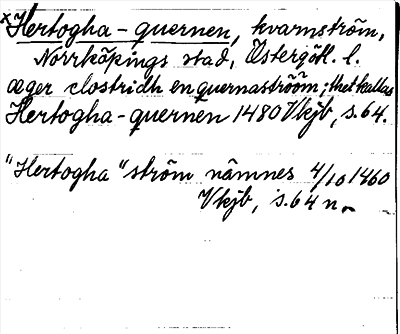 x Hertogha-quernen, kvarnström,
Norrköpings stad, Östergötl. l.
æger clostridh en quernaströöm; thet kallas
Hertogha-quernen 1480 Vkjb, s. 64.
"Hertogha" ström nämnes 4/10 1460
Vkjb, s. 64 n.